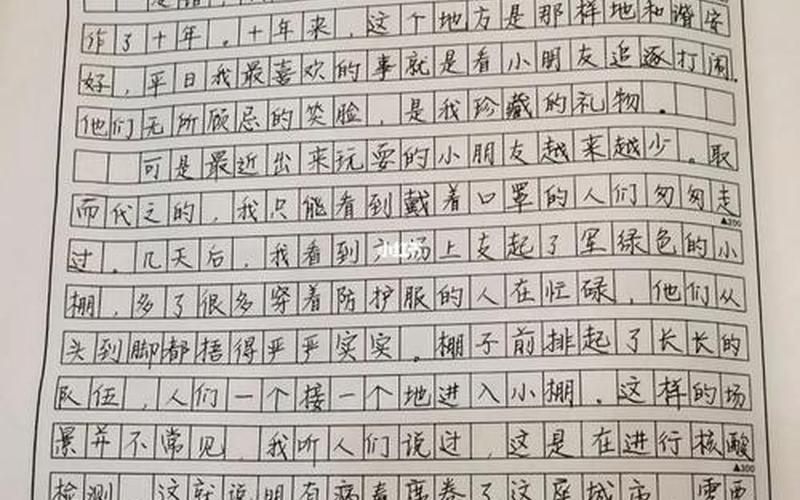 作了十年。十年来，这个地方是那样地和谐安
好，平日我最喜欢的事就是看小朋友追逐打闹.
他们无所顾忌的笑脸，是我珍藏的礼物。
可是最近出来玩耍的小朋友越来越少。取
而代之的，我只能看到戴着口罩的人们匆匆走
▲200
过。几天后，我看到广场上支起了军绿色的小
棚，多了很多穿着防护服的人在忙碌，他们从
头到脚都捂得严严实实。棚子前排起了长长的
队伍，人们一个接一个地进入小棚。这样的场
景并不常见，我听人们说过，这是在进行核酸
▲300
检测，这就说明有病毒席卷了这座城市，需要